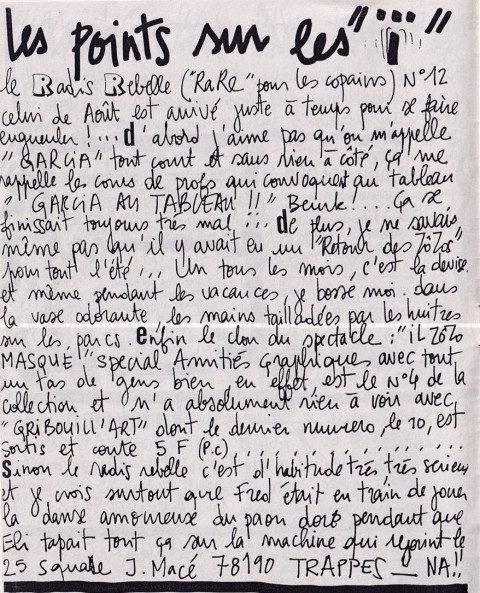 les points sur les "i"
le Radis Rebelle ("RaRe" pour les copains) N°12
celui de Août est arrivé juste à temps pour se faire
engueuler !... d'abord j'aime pas qu'on m'appelle
"GARCiA" tout court et sans rien à côté, ça me
rappelle les cours de profs qui convoquent au tableau
"GARCiA AU TABLEAU !!" Beurk!.... Ça se
finissait toujours très mal ... de plus, je ne savais
même pas qu'il y avait eu un "Retour des Zozos"
pour tout l'été... Un tous les mois, c'est la devise
et même pendant les vacances, je bosse moi. dans
la vase odorante les mains tailladées par les huîtres
sur les parcs. enfin le clou du spectacle : "iL ZOZO
MASQUE" Spécial Amitiés Graphiques avec tout
un tas de gens bien, en effet, est le N°4 de la
collection et n'a absolument rien à voir avec
"GRiBOUiLL'ART" dont le dernier numero, le 10, est
sortis et coute 5 F (P.c) .....................
Sinon le radis rebelle c'est d'habitude très très serieux
et je crois surtout que Fred était en train de jouer
la danse amoureuse du paon doré pendant que
Eli tapait tout ça sur la machine qui rejoint le
25 square J. Macé 78190 TRAPPES _ NA!!